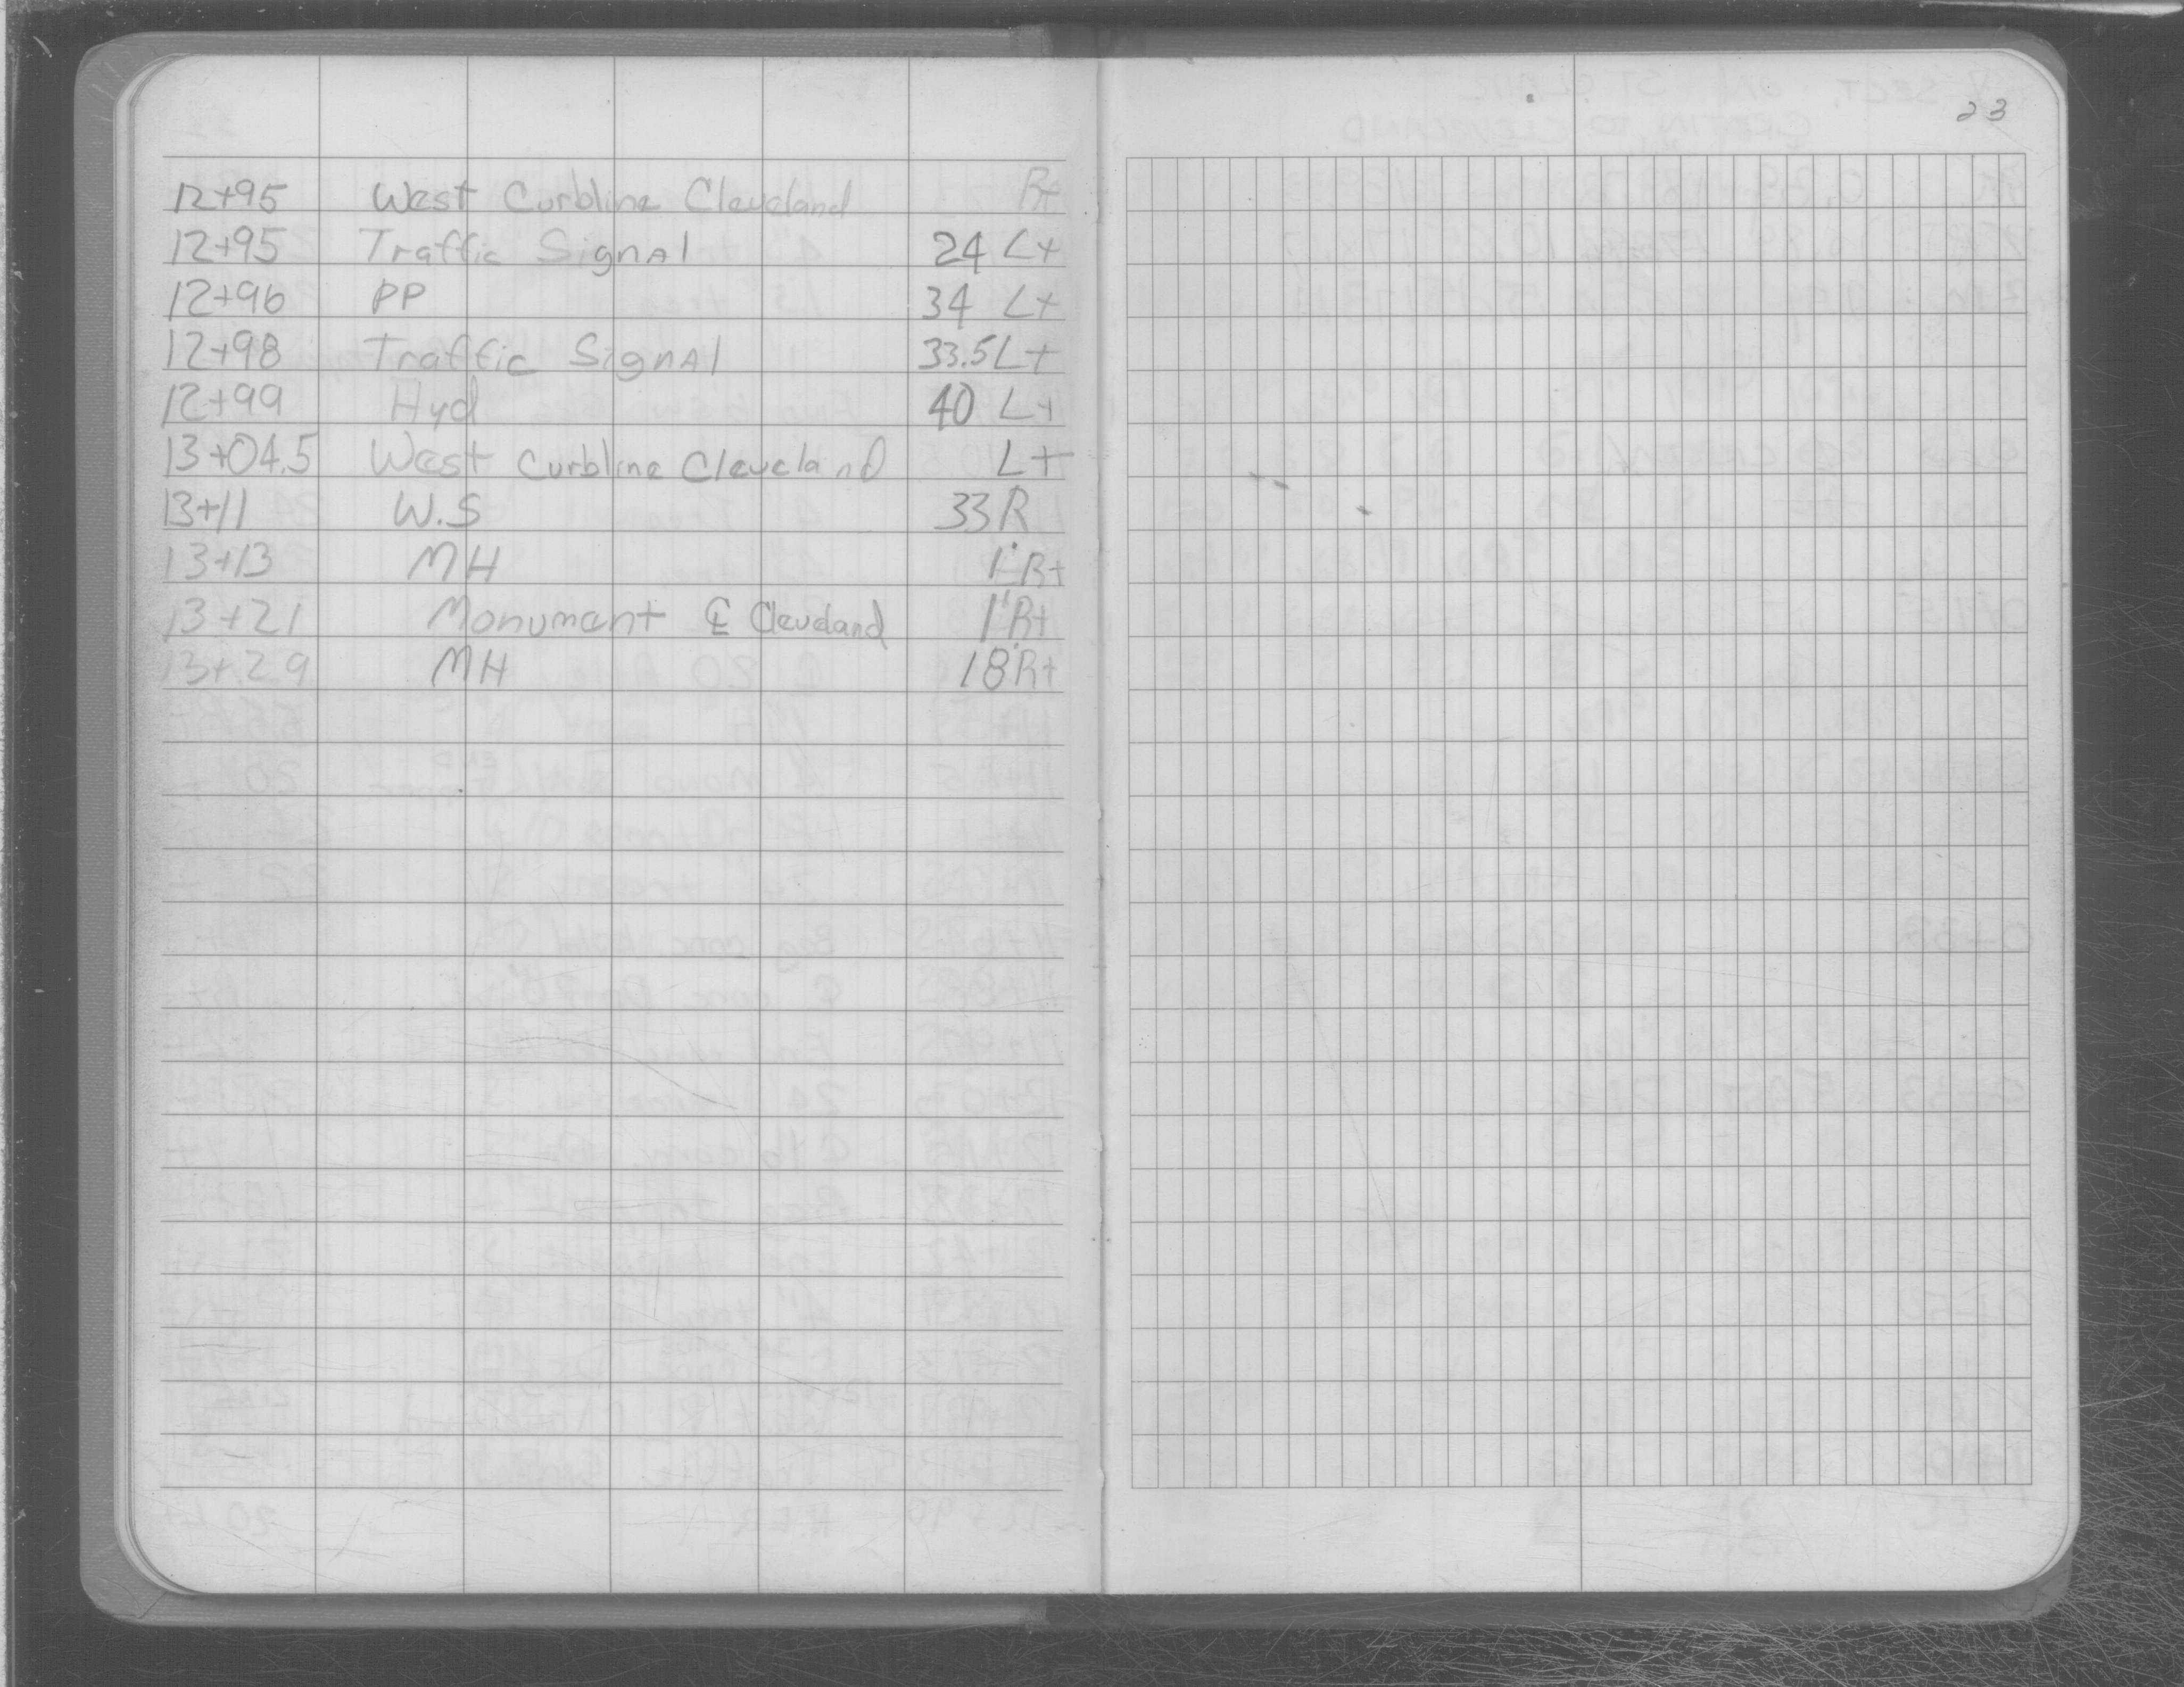 23
12+95 West Curbline Cleveland Rt
12+95 Traffic Signal 24 Lt
12+96 PP 34 Lt
12+98 Traffic Signal 33.5 Lt
12+99 Hyd 40 Lt
13+04.5 West Curbline Cleveland Lt
13+11 W.S 33 R
13+13 MH 1' Rt
13+21 Monument ℄ Cleveland 1' Rt
13+29 MH 18' Rt